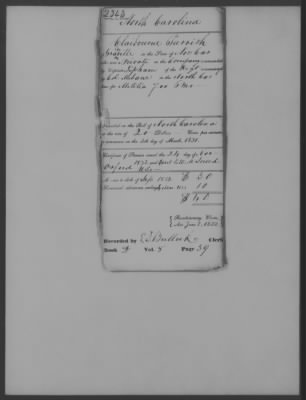 2343
North Carolina
Claibourne Parrish
of Granville in the State of Nor Car
who was a Private in the Company commanded
by Captain Upham of the Regt commanded
by Col. Mebane in the North Car
line for Militia 7 mo
Inscribed on the Roll of North Carolina
at the rate of 20 Dollars Cents per annum,
to commence on the 4th day of March, 1831.
Certificate of Pension issued the 24 day of Nov
1832 and
Oxford
Arrears to the 4th of Sept 1832 $ 30
Semi-anl. allowance ending 4 Mar 1833 10
$ 40
Revolutionary Claim,
Act June 7, 1832.
Recorded by E S Bullock Clerk
Book Vol. Page 39